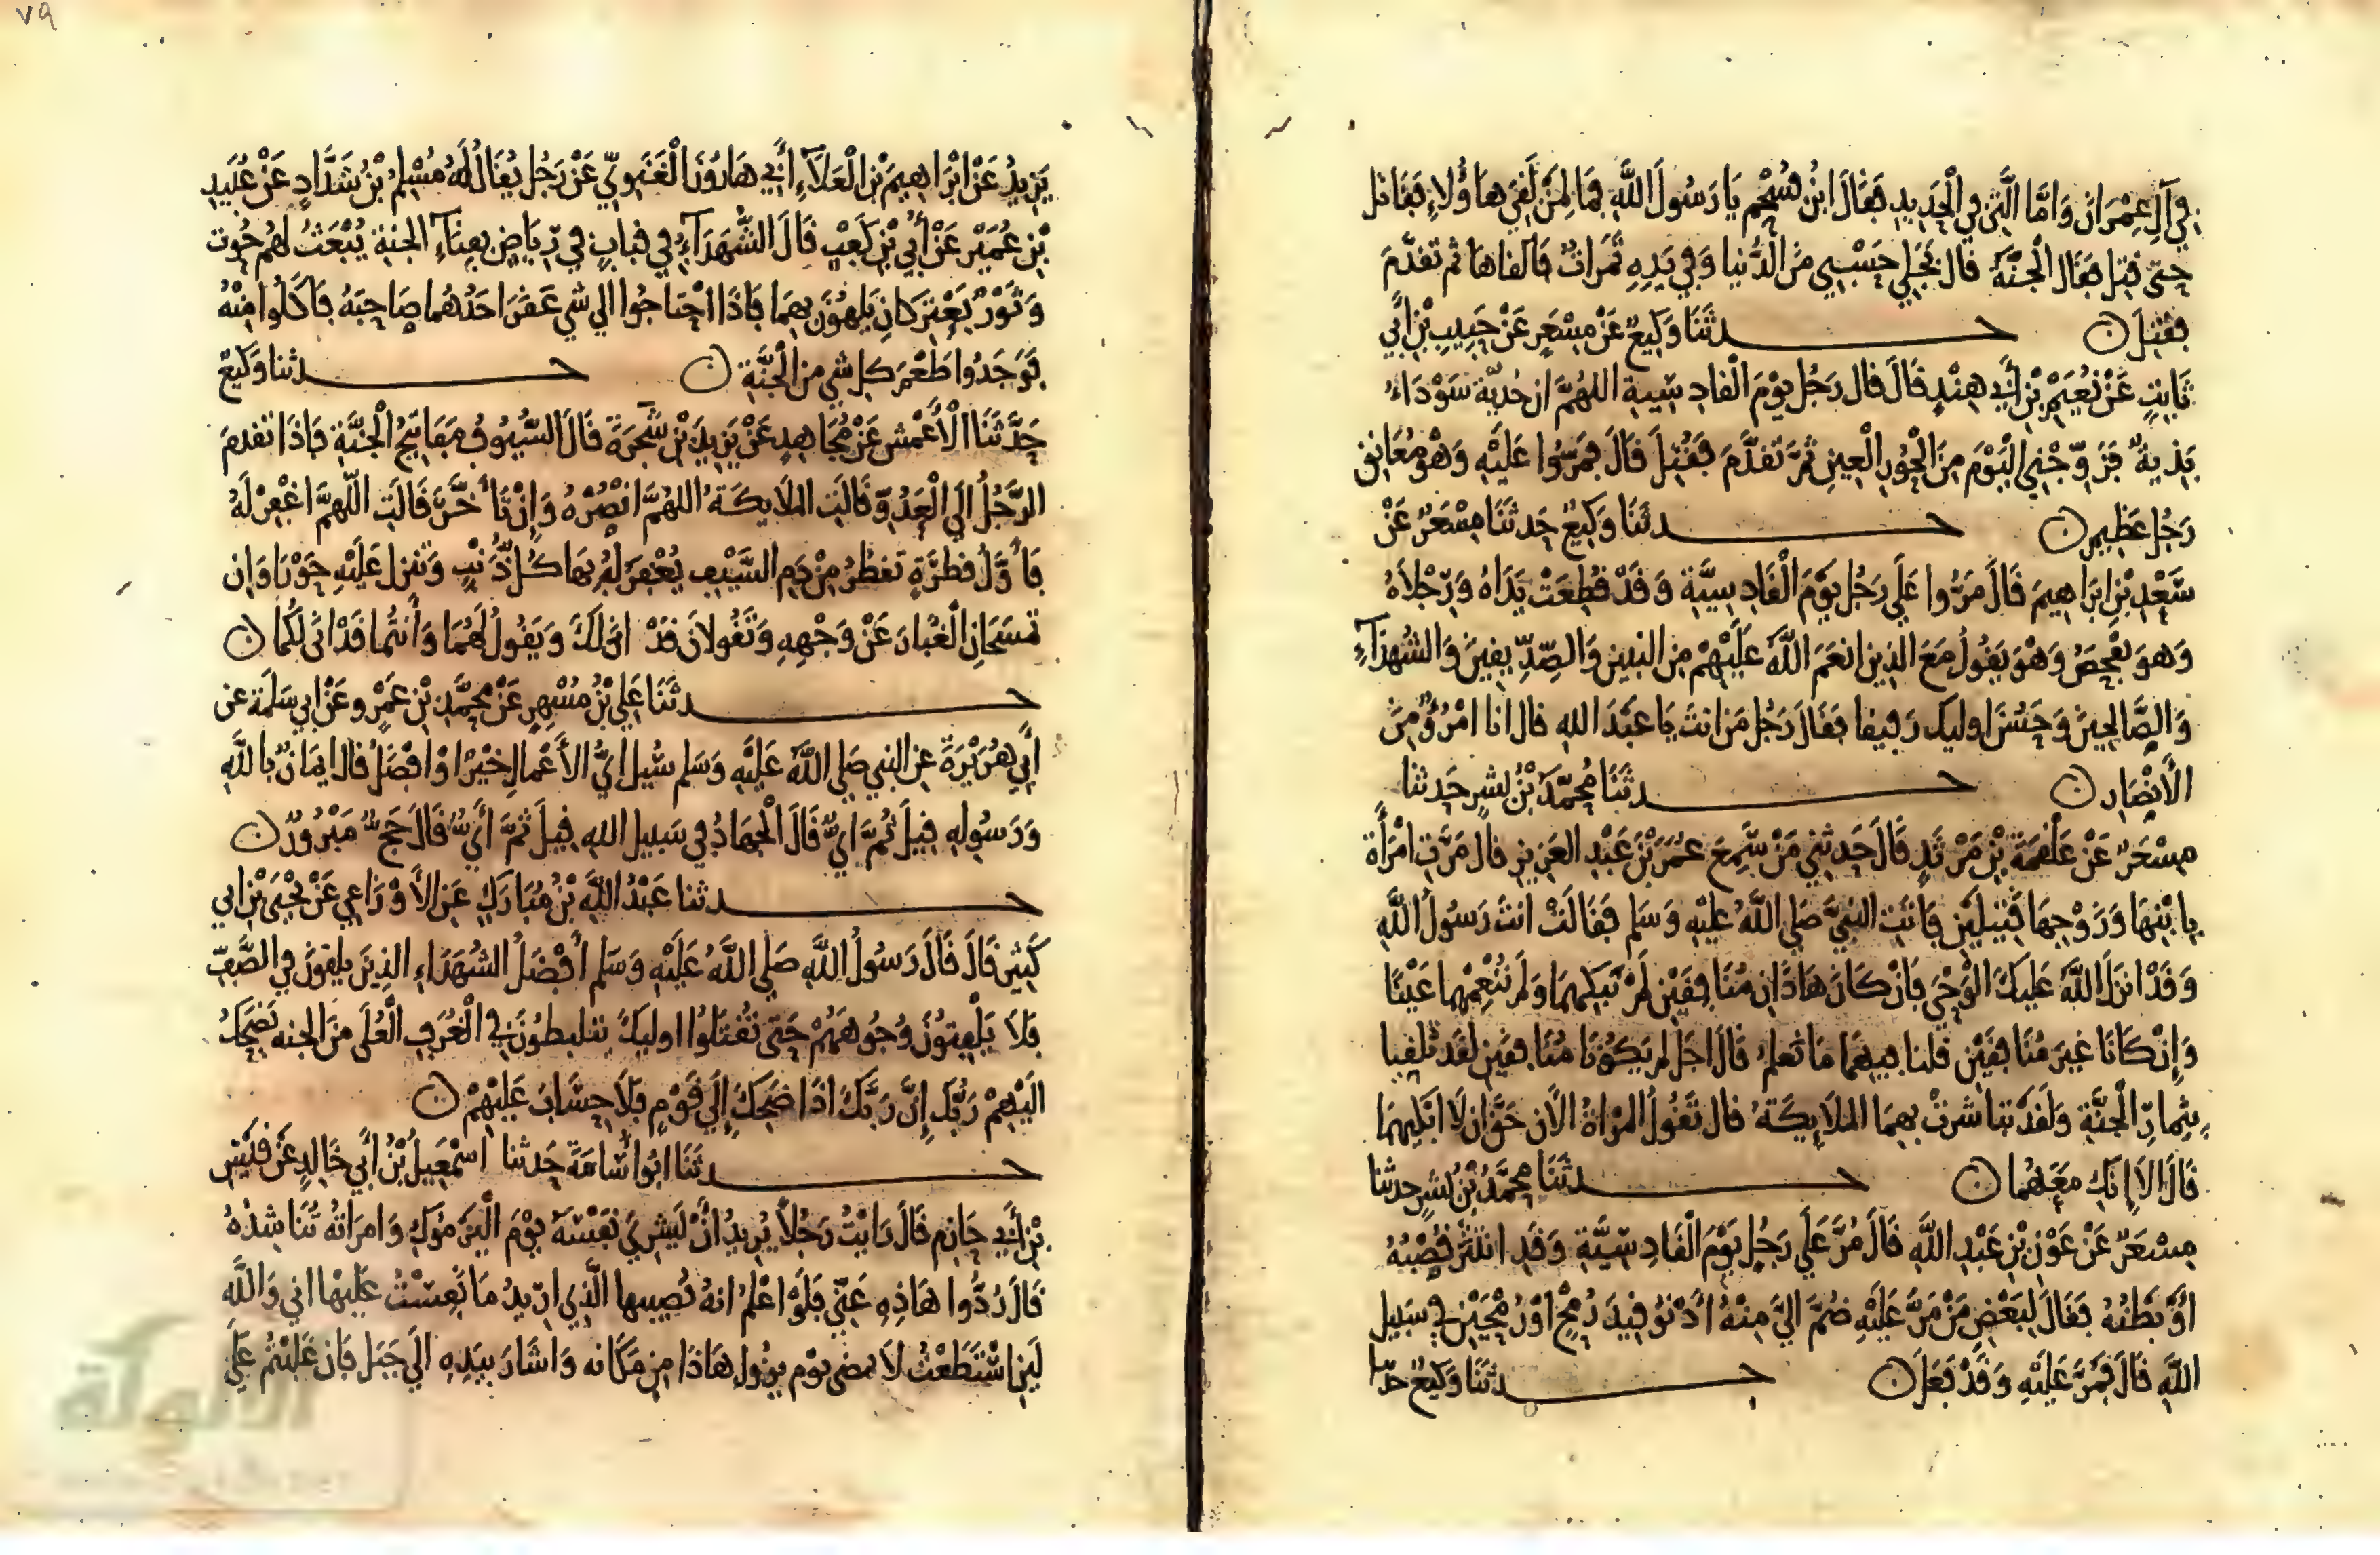 في آل عِمْرَان وَامَّا الَّتِي في الْحَدِيدِ فَقَالَ ابْنُ سُحْيم يَا رَسُولَ اللَّهِ فِمَا لِمَنْ لَقِيَ هَاؤُلاءِ فَقَاتَل
حَتَّى قتِل فَقَال الْجَنَّةَ قال بَخَلِي حَسْبِي مَنَ الدُّنيا وَفِي يَدِهِ تَمَرَاتٌ فالقاها ثم تقدَّمَ
فقُتِلَ ن حـدثَنَا وَكِيعٌ عَنْ مِسْعَرٍ عَنْ حَبِيبِ بْنِ أَبِي
ثَابِتٍ عَنْ نُعَيْمِ بْنِ أَبِي هِنْدٍ قَالَ قال رَجُل يَوْمَ الْقادِسِيةِ اللهُمَّ ان حُدَيّةَ سَوْدَاءُ
بَذِيةٌ فَزَوِّجْنِي الْيَوْمَ مِنَ الْحُورِ الْعِينِ ثُمَّ تَقَدَّمَ فَقُتِلَ قَالَ فَمَرُّوا عَلَيْهِ وَهْوَ مُعَانِق
رَجُل عَظِيم ن حـدثَنَا وَكِيعٌ حَدثَنَا مِسْعَرٌ عَنْ
سَعْدِ بْنِ ابْرَاهِيمَ قَالَ مَرُّوا عَلَي رَجُل يَوْمَ الْقَادِسِيَّةِ وَقَدْ قُطِعَتْ يَدَاهُ وَرِجْلاَهُ
وَهوَ يفْحَصُ وَهْوَ يَقُولُ مَعَ الذِين انعَمَ اللَّهُ عَلَيْهِمْ مِن النبيين وَالصِّدِّيقِينَ وَالشُّهدَآءِ
وَالصَّالِحِينَ وَحَسُنَ اوليك رَفِيقا فقَالَ رَجُل مَن انتَ يَا عَبْدَ الله قال انا امْرُؤٌ مِنَ
الأَنْصَارِ ن حـدثَنَا مُحَمَّدُ بْنُ بِشْرٍ حَدثنا
مِسْعَرٌ عَنْ عَلْقَمَةَ بْنِ مَرْثَدٍ قَالَ حَدثنِي مَنْ سَمِعَ عُمَرَ بْنَ عَبْدِ العَزِيزِ قال مَرَّت امْرَأَة
بِابْنِهَا وَزَوْجِهَا قَتِيلَيْنِ فَاتَتِ النبِيَّ صَلي اللَّهُ عليْهِ وَسَلم فَقَالَتْ انتَ رَسُولُ اللَّهِ
وَقَدْ انزَلَ اللَّهُ عَليكَ الْوَحْيَ فَانْ كَانَ هَاذَانِ مُنَافِقَيْنِ لَمْ نَبْكِهِمَا وَلَم نُنْعِمْهما عَيْنًا
وَإِنْ كَانَا غير مُنَافِقَيْنِ قلنا فيهمَا مَا نعلمُ قَالَ اجَل لم يَكُونَا مُنَافِقَيْنِ لَقَد تُلُقِّيَا
بِثِمَارِ الْجَنَّةِ وَلَقَدْ تباشَرَتْ بِهِمَا الْمَلاَيِكَةُ قال تَقُولُ الْمَرْاةُ الآن حَقٌّ ان لا ابْكِيَهمَا
قَالَ الا إِنكِ مَعَهُمَا ن حـدثَنَا مُحَمَّدُ بْنُ بِشْرٍ حدثنا
مِسْعَرٌ عَنْ عَوْنِ بْنِ عَبْدِ اللَّهِ قَالَ مُرَّ عَلَي رَجُلٍ يَوْمَ الْقَادِسِيَّةِ وَقَدِ انتَثَرَ قُصْبُهُ
أَوْ بَطْنُهُ فَقَالَ لِبَعْضِ مَنْ مَرَّ عَلَيْهِ ضُمَّ الَيَّ مِنْهُ أَدْنُو قِيدَ رُمْحٍ اوْ رُمْحَيْنِ في سَبِيل
اللَّهِ قَالَ فَمَرَّ عَلَيْهِ وَقَدْ فَعَلَ ن حـدثَنَا وَكِيعٌ حدثنا
٧٩
يَزِيدُ عَنْ ابْرَاهِيمَ بْنِ الْعَلاَءِ أَبِي هَارُونَ الْغَنَوِيّ عَنْ رَجُل يُقَالُ لَهُ مُسْلِمُ بْنُ شَدَّادٍ عَنْ عُبَيدِ
بْنِ عُمَيْرٍ عَنْ أُبَيِّ بْنِ كَعْبٍ قَالَ الشُّهَدَآءُ فِي قبابٍ في رِيَاضٍ بِفِنَآءِ الجنةِ يُبْعَثُ لهُم حُوت
وَثَوْرٌ يَعْتَرِكَانِ يَلهُونَ بِهِمَا فَاذَا احْتاجُوا الي شي عَقَرَ احَدُهُما صَاحِبَهُ فَاكَلُوا مِنْهُ
فوَجَدُوا طَعْمَ كل شي مِنَ الْجَنَّةِ ن حـدثنا وَكيعٌ
حَدَّثَنَا الأَعْمش عَنْ مُجَاهِدٍ عَنْ يَزِيدَ بْنِ شَجَرَةَ قَالَ السُّيُوفُ مَفَاتِيحُ الْجَنَّةِ فَاذَا تقدمَ
الرَّجُلُ الَي الْعَدُوِّ قَالتِ الملاَيِكَةُ اللهُمَّ انْصُرْهُ وَإِنْ تَأَخَّرَ قَالَتِ اللَّهمَّ اغْفِرْ لَهُ
فَأَوَّلُ قطْرَةٍ تقطُرُ مِنْ دَمِ السَّيْفِ يُغْفَرُ لَهُ بِهَا كُلُّ ذَنْبٍ وَتنزِل عَلَيْهِ حَوْرَاوَانِ
تمسَحَانِ الْغُبَارَ عَنْ وَجْهِهِ وَتَقُولانِ قَدْ انَى لَكَ وَيَقُولُ لَهُمَا وَأَنتُمَا قَدْ انَى لَكُمَا ن
حـدثَنَا عَلِيُّ بْنُ مُسْهِرٍ عَنْ مُحَمَّدِ بْنِ عَمْرٍو عَنْ ابِي سَلَمَةَ عن
أَبِي هُرَيْرَةَ عن النبِي صَلي اللَّهُ عَلَيْهِ وَسَلم سُيِلَ ايُّ الأَعْمالِ خَيْرٌ اوْ افْضَلُ قَال ايمَانٌ بِاللَّهِ
وَرَسُولِهِ قِيلَ ثُمَّ ايٌّ قَالَ الْجِهَادُ فِي سَبِيل اللهِ قِيلَ ثمَّ أَيٌّ قَالَ حَجٌّ مَبْرُورٌ ن
حـدثنا عَبْدُ اللَّهِ بْنُ مُبَارَكٍ عَنِ الأَوْزَاعِي عَنْ يَحْيَى بْنِ ابي
كَثِيرٍ قَالَ قَالَ رَسُولُ اللَّهِ صَلي اللَّهُ عَلَيْهِ وَسَلم أَفْضَلُ الشُّهَدَاءِ الذِينَ يلقَوْنَ في الصَّفِّ
فَلاَ يَلْفِتُونَ وُجُوهَهُمْ حَتَّى يُقْتَلُوا اوليكَ يتلبطُونَ في الْغُرَفِ الْعُلَى مِنَ الجنه يَضْحَكُ
الَيْهِمْ رَبُّكَ إِنَّ رَبَّكَ اذَا ضَحِكَ إِلَي قَوْمٍ فَلاَ حِسَابَ عَلَيْهِمْ ن
حـدثَنَا ابُوا أُسَامَةَ حَدثنا اسْمَعِيلُ بْنُ أَبِي خَالِدٍ عَنْ قَيْسِ
بْنِ أَبِي حَازِمٍ قَالَ رَايْتُ رَجُلاً يُرِيدُ أَنْ يَشْرِيَ نَفْسَهُ يَوْمَ الْيَرْمُوكِ وَامرَاتُهُ تُنَاشِدُهُ
قَالَ رُدُّوا هَاذِهِ عَنِّي فَلَوْ اعْلمُ انهُ يُصِيبها الَّذِي ارِيدُ مَا نَفِسْتُ عَلَيْهَا اني وَاللَّه
لَيِن اسْتَطَعْتُ لاَ يمضى يوْم يزُول هَاذَا مِن مَكَانه وَاشَارَ بِيَدِهِ الَي جَبَل فَان غَلَبْتُم عَلَي
الألوكة